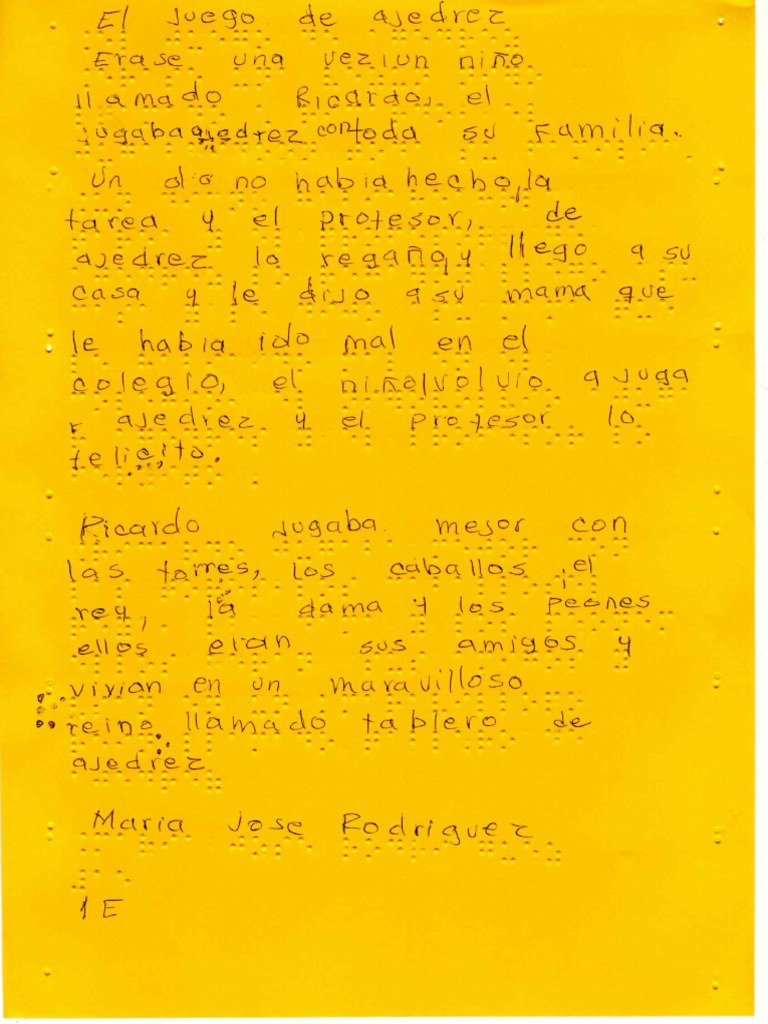 El juego de ajedrez
Erase una vez un niño
llamado Ricardo, el
jugaba ajedrez con toda su Familia.
Un dia no habia hecho, la
tarea y el profesor, de
ajedrez lo regaño, y llego a su
casa y le dijo a su mama que
le habia ido mal en el
colegio, el niño volvio a juga
r ajedrez y el profesor lo
felicito.
Ricardo jugaba mejor con
las torres, los caballos, el
rey, la dama y los peones
ellos eran sus amigos y
vivian en un maravilloso
reino, llamado tablero de
ajedrez
Maria Jose Rodriguez
1E